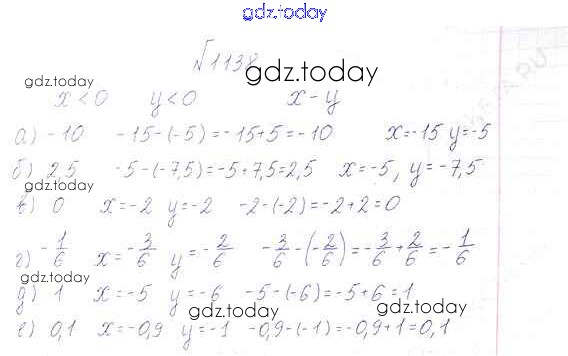 gdz.today
№1138
gdz.today
gdz.today
x<0 y<0 x-y
а) -10 -15-(-5)=-15+5=-10 x=-15 y=-5
б) 2,5 -5-(-7,5)=-5+7,5=2,5 x=-5, y=-7,5
gdz.today
в) 0 x=-2 y=-2 -2-(-2)=-2+2=0
г) -1/6 x=-3/6 y=-2/6 -3/6-(-2/6)=-3/6+2/6=-1/6
gdz.today
д) 1 x=-5 y=-6 -5-(-6)=-5+6=1
gdz.today
gdz.today
е) 0,1 x=-0,9 y=-1 -0,9-(-1)=-0,9+1=0,1